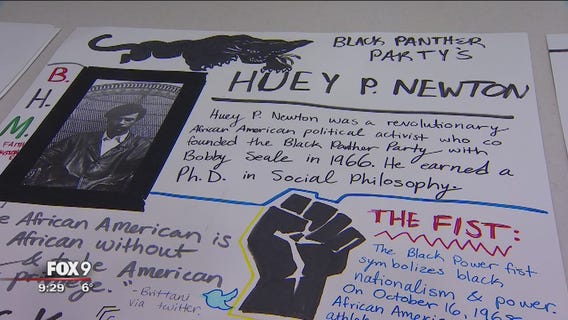 BLACK PANTHER
PARTY'S
HUEY P. NEWTON
B.
H.
M.
Huey P. Newton was a revolutionary
African American political activist who co
founded the Black Panther Party with
Bobby Seale in 1966. He earned a
Ph.D. in Social Philosophy.
African American is
African without
& the American
privilege."
- Brittani
via twitter.
THE FIST:
The Black Power fist
symbolizes black,
nationalism & power.
On October 16, 1968
African America
athle
FOX 9
9:29 6°